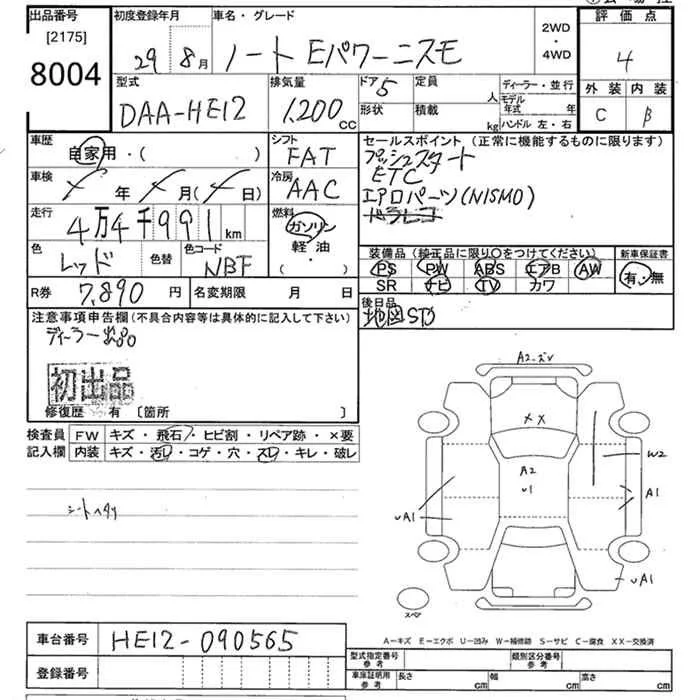 出品番号 初度登録年月 車名・グレード 評価点
[2175]
8004 29年 8月 ノート Eパワーニスモ 2WD・4WD 4
型式 排気量 ドア 5 定員 人 ディーラー・並行 外装 内装
DAA-HE12 1,200cc 形状 積載 kg モデル年式 年 ハンドル 左・右 C B
車歴 シフト セールスポイント (正常に機能するものに限ります)
自家用・( ) FAT プッシュスタート
車検 冷房 ETC
年 月( 日) AAC エアロパーツ(NISMO)
走行 燃料 ドラレコ
4万4千991km ガソリン
色 色替 色コード 軽・油 装備品 (純正品に限り○をつけてください) 新車保証書
レッド NBF ・( ) PS PW ABS エアB AW 有・無
SR ナビ TV カワ
R券 7,890円 名変期限 月 日 後日品
注意事項申告欄(不具合内容等は具体的に記入して下さい) 地図SD
ディーラー出品
初出品
修復歴 有 [箇所 ]
検査員 FW キズ・飛石・ヒビ割・リペア跡・×要
記入欄 内装 キズ・汚レ・コゲ・穴・スレ・キレ・破レ
A2
XX
W2
A2
U1
A1
UA1
UA1
スペア
A-キズ E-エクボ U-凹み W-補修跡 S-サビ C-腐食 XX-交換済
車台番号 HE12-090565
型式指定番号 参考 類別区分番号 参考
登録番号 車庫証明用 参考 長さ cm 幅 cm 高さ cm